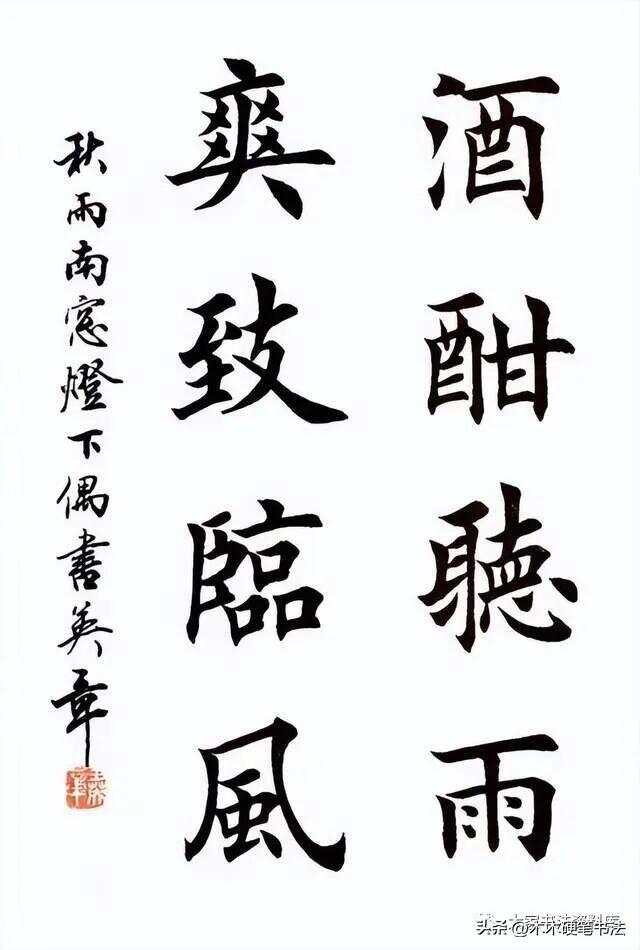 酒酣聽雨
爽致臨風
秋雨南窓燈下偶書英章
头条@木木硬笔书法